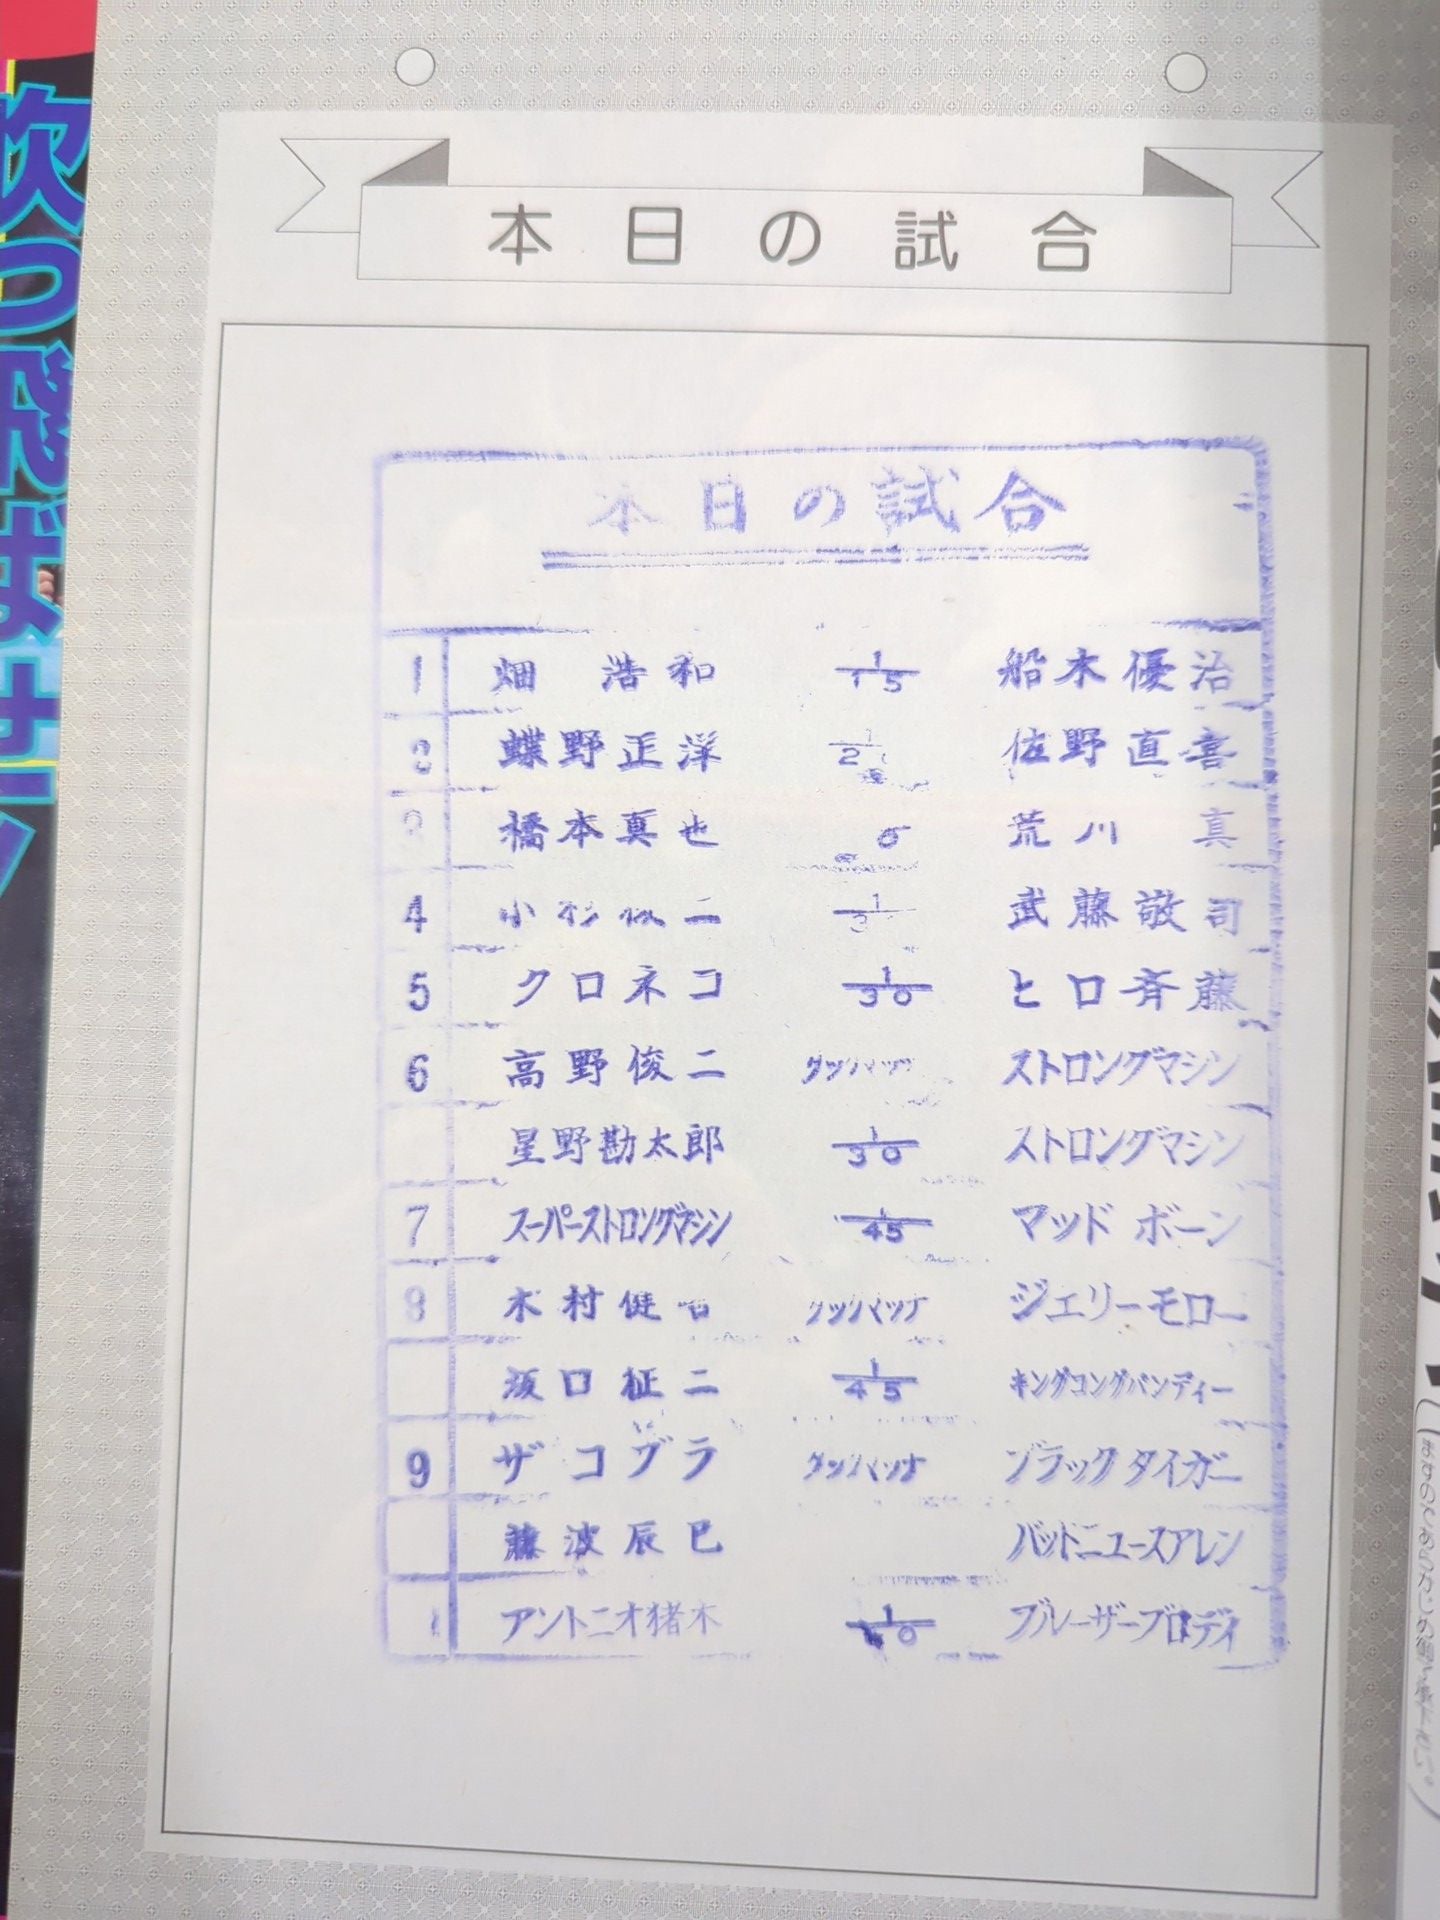 吹っ飛ばせ
本日の試合
本日の試合
1 畑 浩和 1/15 船木優治
2 蝶野正洋 佐野直喜
橋本真也 荒川 真
4 武藤敬司
5 クロネコ 1/30 ヒロ斉藤
6 高野俊二 タッグマッチ ストロングマシン
星野勘太郎 1/30 ストロングマシン
7 スーパーストロングマシン 1/45 マッド ボーン
8 木村健吾 タッグマッチ ジェリーモロー
坂口征二 1/45 キングコングバンディー
9 ザコブラ タッグマッチ ブラックタイガー
藤波辰巳 バッドニュースアレン
アントニオ猪木 ブルーザーブロディ